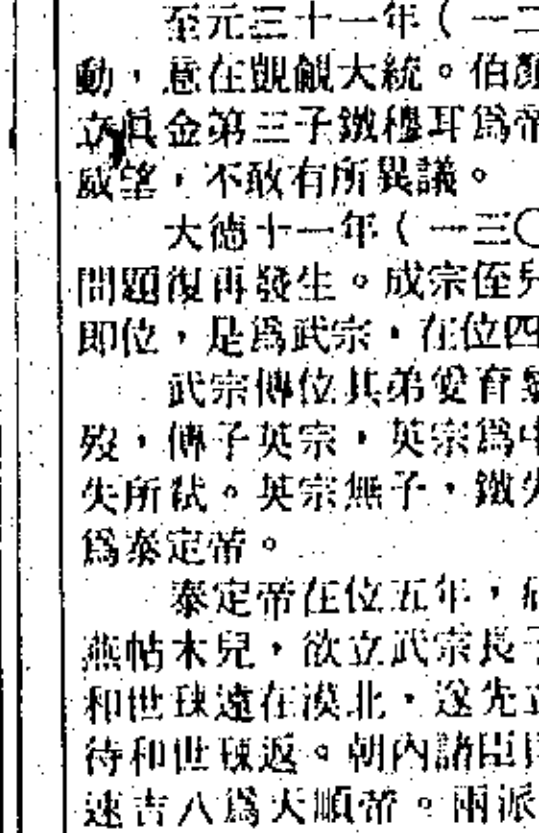 至元三十一年（一二
動，意在覬覦大統。伯顏
立眞金第三子鐵穆耳爲帝
威望，不敢有所異議。
大德十一年（一三〇
問題復再發生。成宗侄兒
即位，是爲武宗，在位四
武宗傳位其弟愛育黎
歿，傳子英宗，英宗爲中
失所弒。英宗無子，鐵失
爲泰定帝。
泰定帝在位五年，病
燕帖木兒，欲立武宗長子
和世㻋遠在漠北，遂先立
待和世㻋返。朝內諸臣
速吉八爲天順帝。兩派